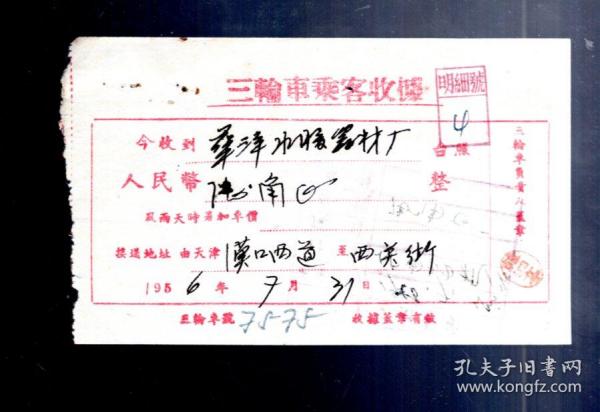 三輪車乘客收據
明細號
4
今收到 華洋水暖器材厂 台照
人民幣 角 整
風雨天時另加車價
接送地址 由天津 漢口西道 至 西芙街
1956年7月31日
三輪車號 7575 收據蓋章有效
三輪車員蓋章
孔夫子旧书网
www.kongfz.com